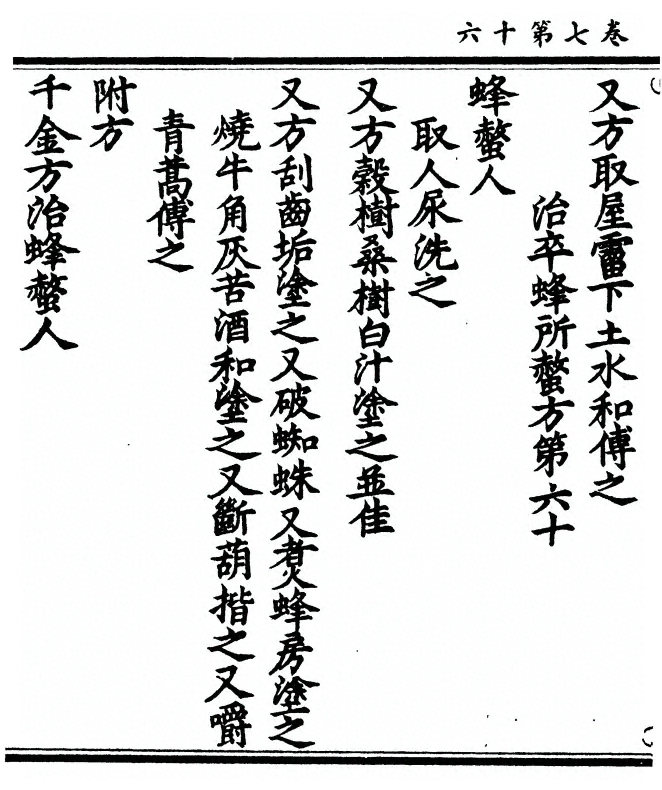 卷七第十六
又方取屋霤下土水和傅之
治卒蜂所螫方第六十
蜂螫人
取人尿洗之
又方榖樹桑樹白汁塗之並佳
又方刮齒垢塗之又破蜘蛛又煑蜂房塗之
燒牛角灰苦酒和塗之又斷葫揩之又嚼
青蒿傅之
附方
千金方治蜂螫人